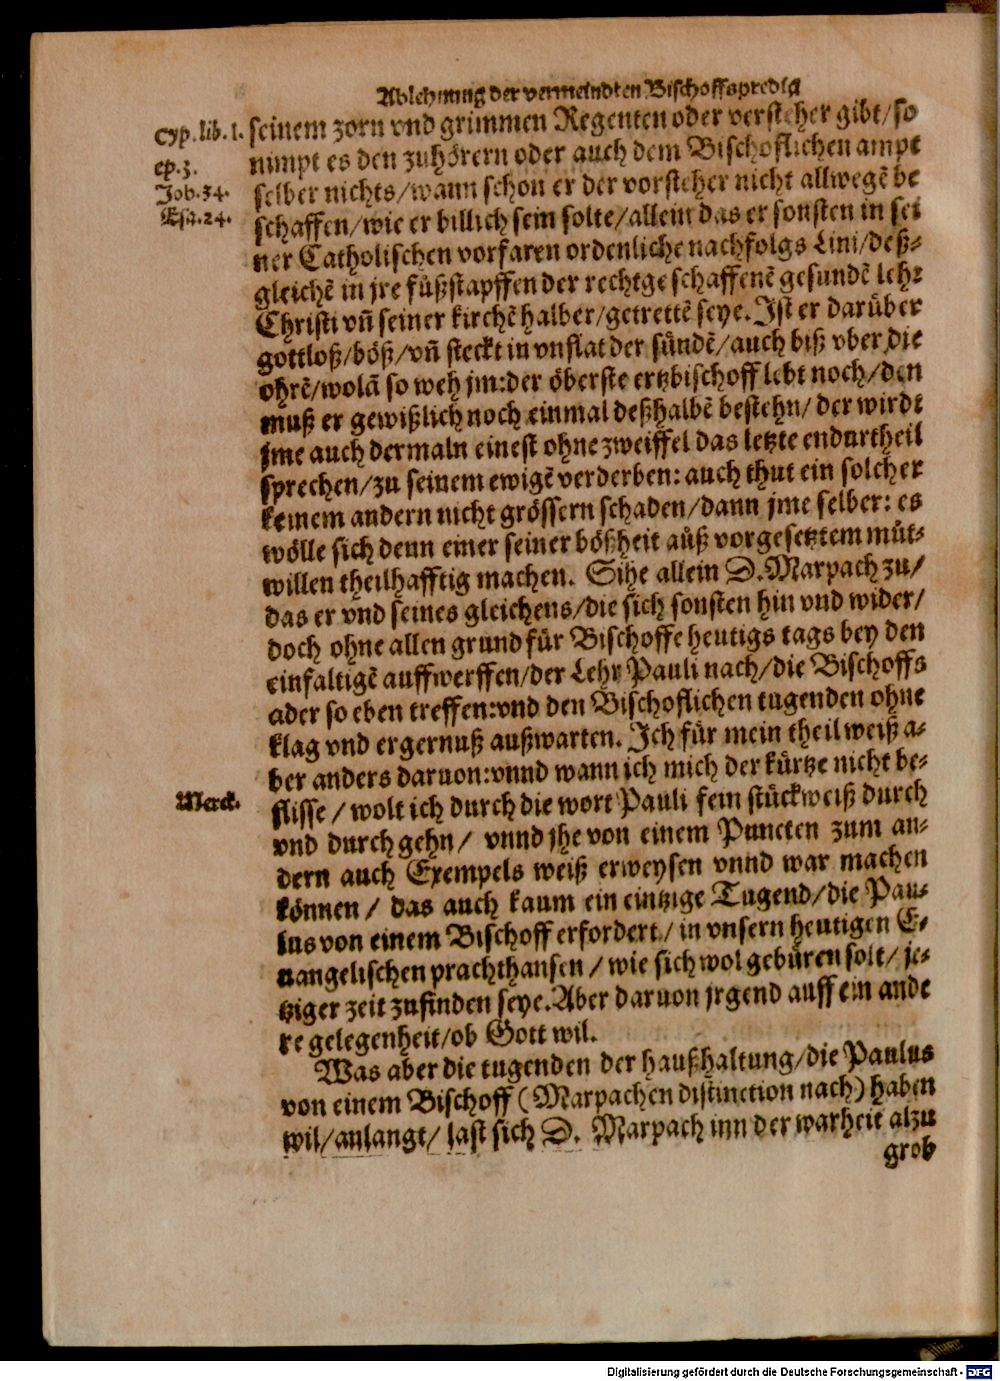 Ablehnung der vermeindten Bischoffspredig
cyp. lib. 1.
ep. 3.
Job. 34.
Esa. 24.
seinem zorn vnd grimmen Regenten oder versteher gibt/so
nimpt es den zuhörern oder auch dem Bischoflichen ampt
selber nichts/wann schon er der vorsteher nicht allwegē be
schaffen/wie er billich sein solte/allein das er sonsten in sei
ner Catholischen vorfaren ordenliche nachfolgs Lini/deß-
gleichē in jre fůßstapffen der rechtgeschaffenē gesundē lehr
Christi vñ seiner kirchē halber/getrettē seye. Ist er darüber
gottloß/böß/vñ steckt in vnflat der sündē/auch biß vber die
ohrē/wolā so weh jm: der öberste ertzbischoff lebt noch/den
muß er gewißlich noch einmal deßhalbē bestehn/der wirdt
jme auch dermaln einest ohne zweiffel das letzte endurtheil
sprechen/zu seinem ewigē verderben: auch thut ein solcher
keinem andern nicht grössern schaden/dann jme selber: es
wölle sich denn einer seiner bößheit aůß vorgesetztem můt-
willen theilhafftig machen. Sihe allein D. Marpach zu/
das er vnd seines gleichens/die sich sonsten hin vnd wider/
doch ohne allen grund für Bischoffe heutigs tags bey den
einfaltigē auffwerffen/der Lehr Pauli nach/die Bischoffs
ader so eben treffen: vnd den Bischoflichen tugenden ohne
klag vnd ergernuß außwarten. Ich für mein theil weiß a-
ber anders daruon: vnnd wann ich mich der kürtze nicht be-
Merck.
flisse / wolt ich durch die wort Pauli fein stückweiß durch
vnd durch gehn/ vnnd jhe von einem Puncten zum an-
dern auch Exempels weiß erweysen vnnd war machen
können / das auch kaum ein eintzige Tugend/die Pau-
lus von einem Bischoff erfordert/ in vnsern heutigen E-
uangelischen prachthansen / wie sich wol gebüren solt/ je-
tziger zeit zufinden seye. Aber daruon jrgend auff ein ande
re gelegenheit/ob Gott wil.
Was aber die tugenden der haußhaltung/die Paulus
von einem Bischoff (Marpachen distinction nach) haben
wil/anlangt/ last sich D. Marpach inn der warheit alzu
grob
Digitalisierung gefördert durch die Deutsche Forschungsgemeinschaft - DFG